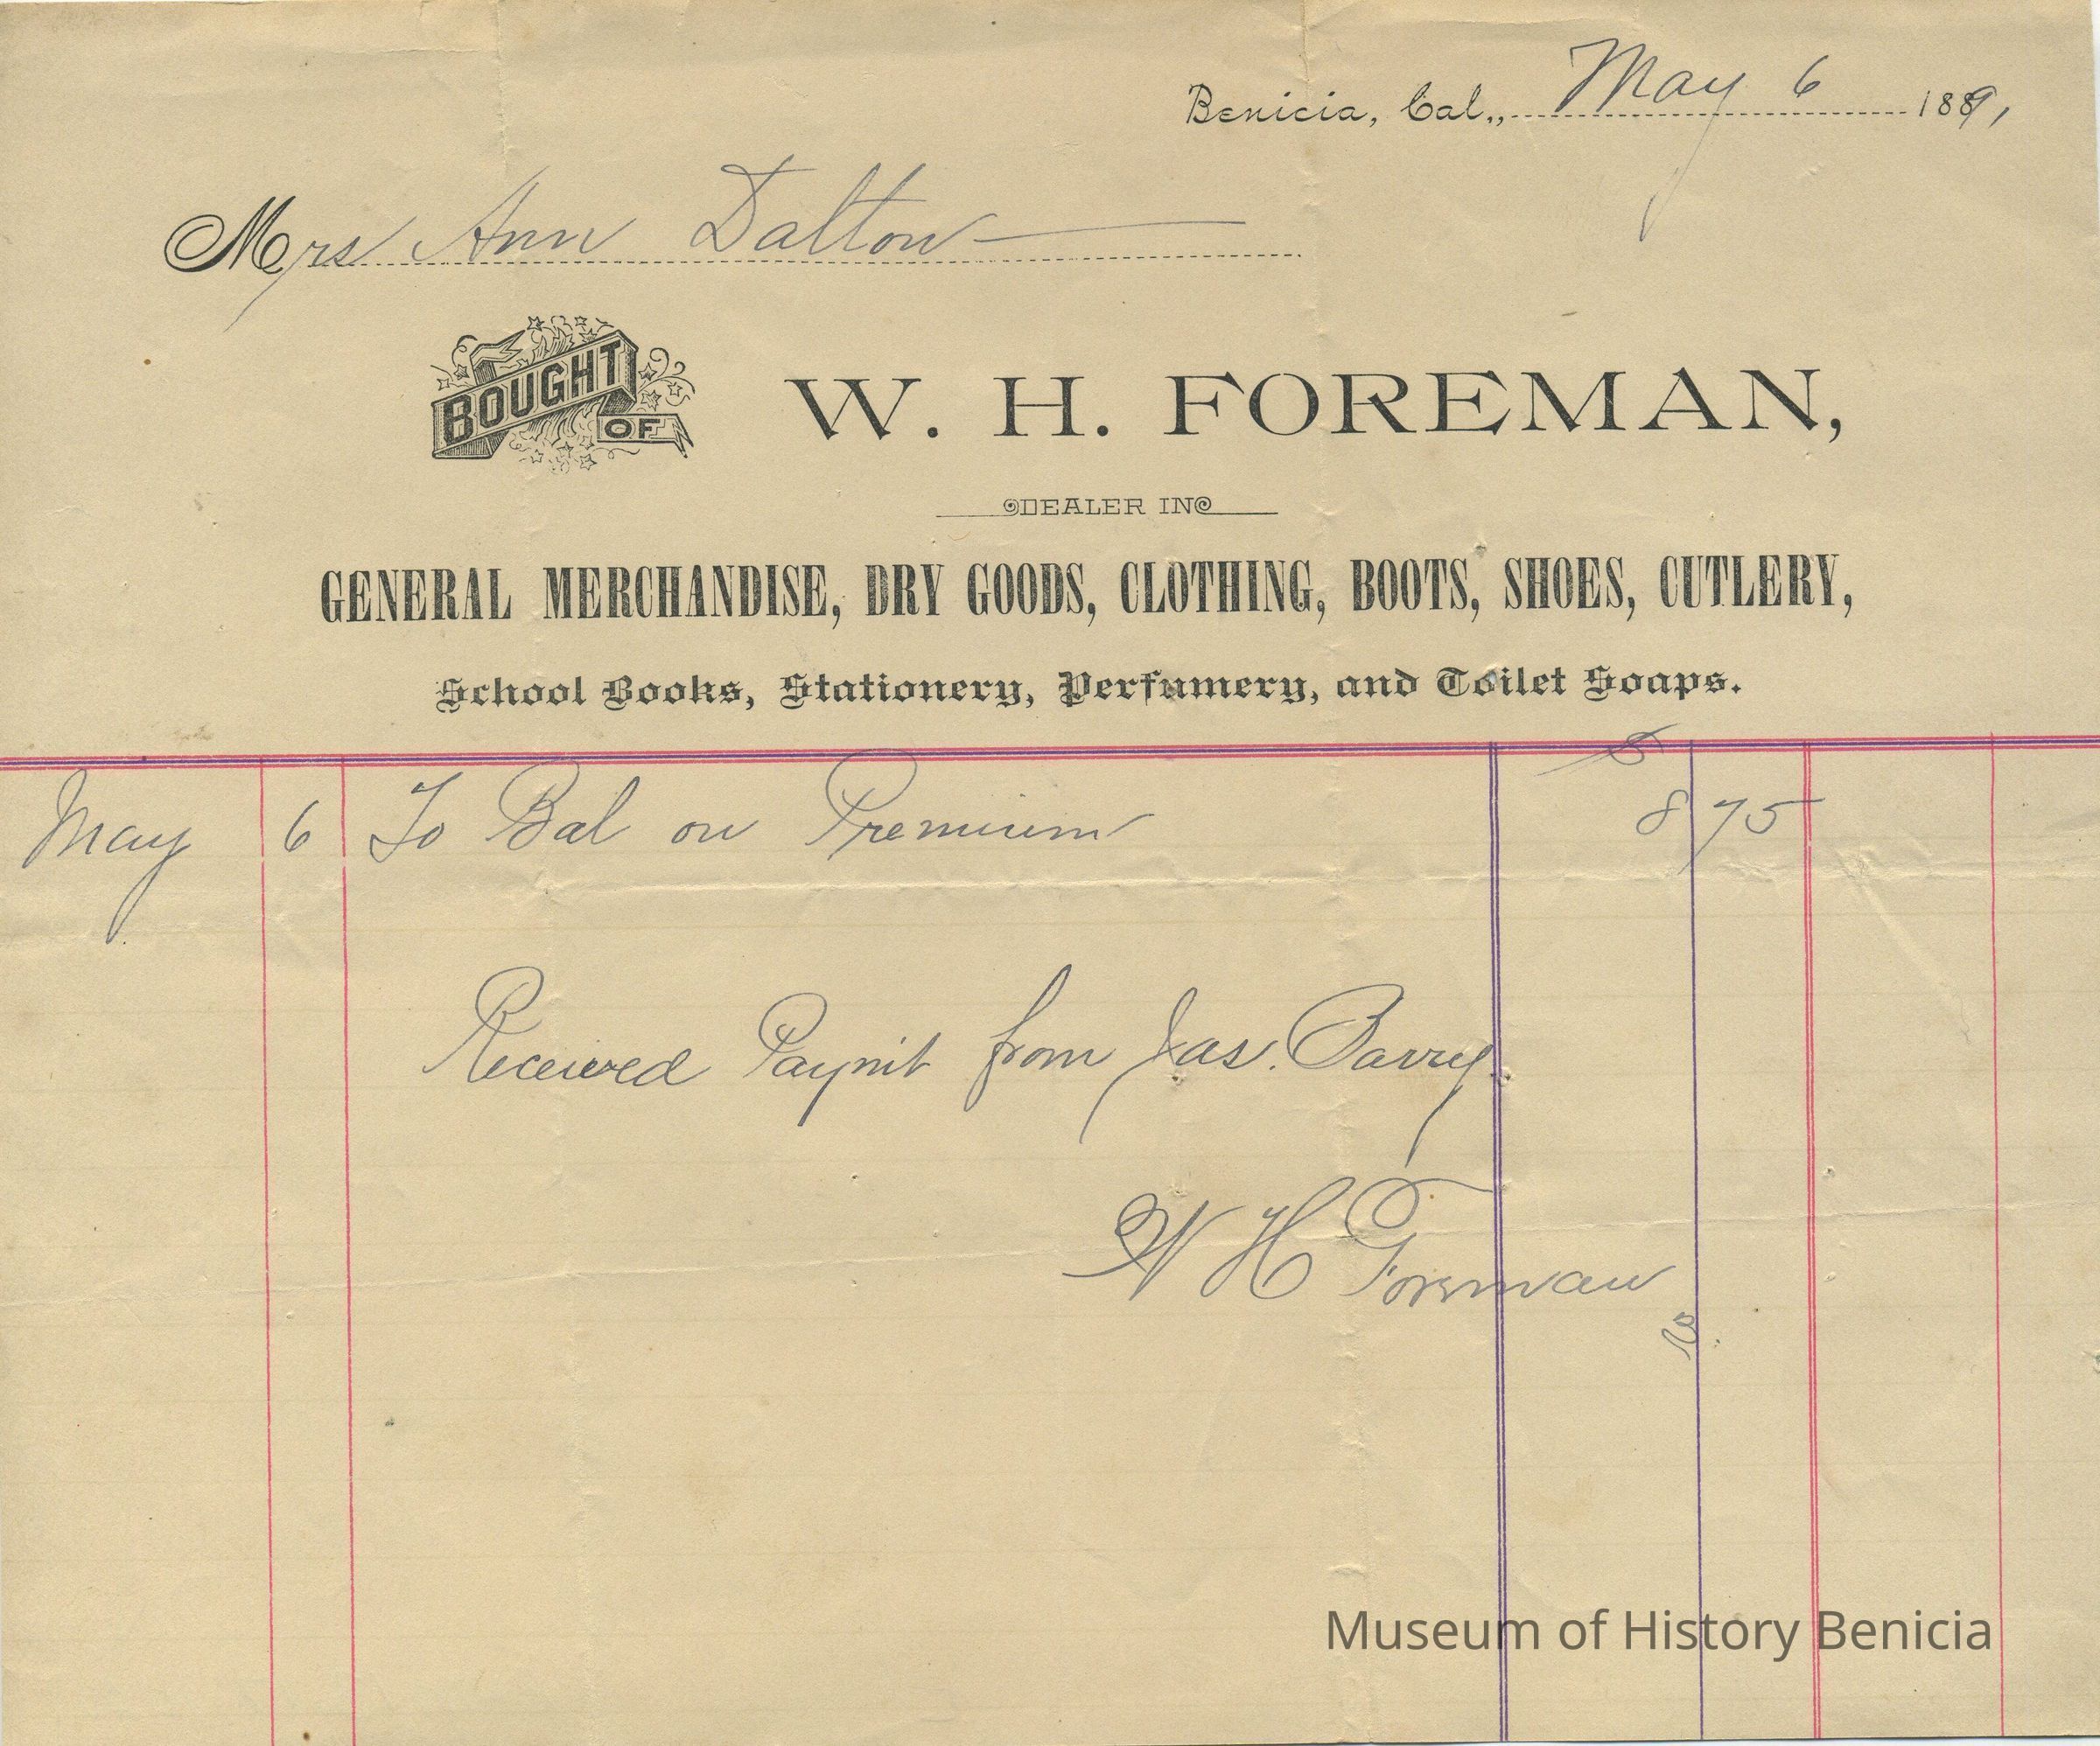 Benicia, Cal., May 6 1889,
Mrs Ann Dalton
BOUGHT OF W. H. FOREMAN,
DEALER IN
GENERAL MERCHANDISE, DRY GOODS, CLOTHING, BOOTS, SHOES, CUTLERY,
School Books, Stationery, Perfumery, and Toilet Soaps.
May 6 To Bal on Premium 8 75
Received Paymt from Jas. Barry
W H Foreman
Museum of History Benicia